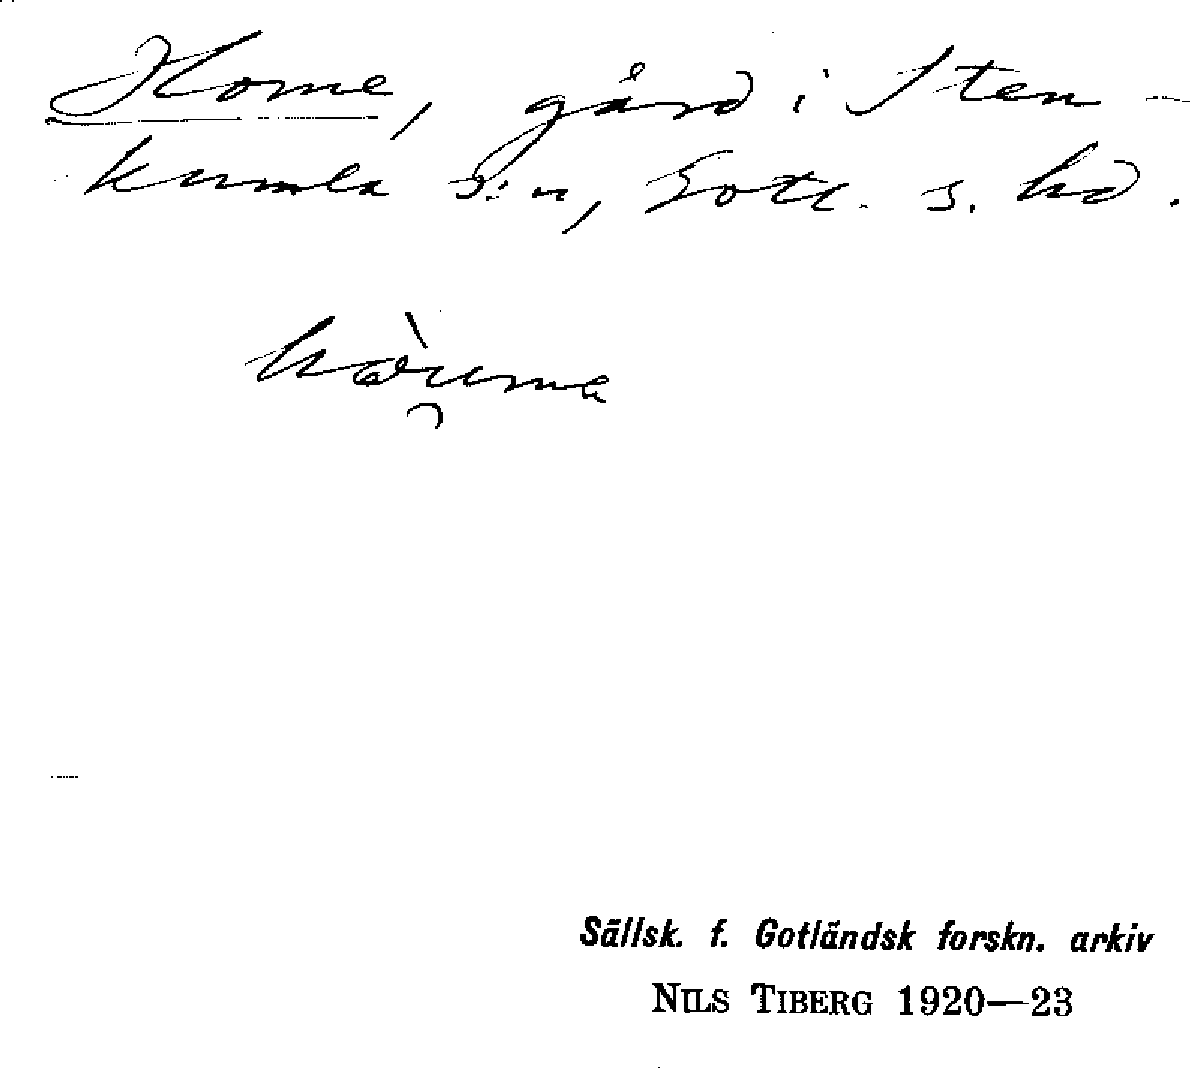 Home, gård i Sten-
kumla s:n, Gotl. s. hd.
Sällsk. f. Gotländsk forskn. arkiv
NILS TIBERG 1920—23